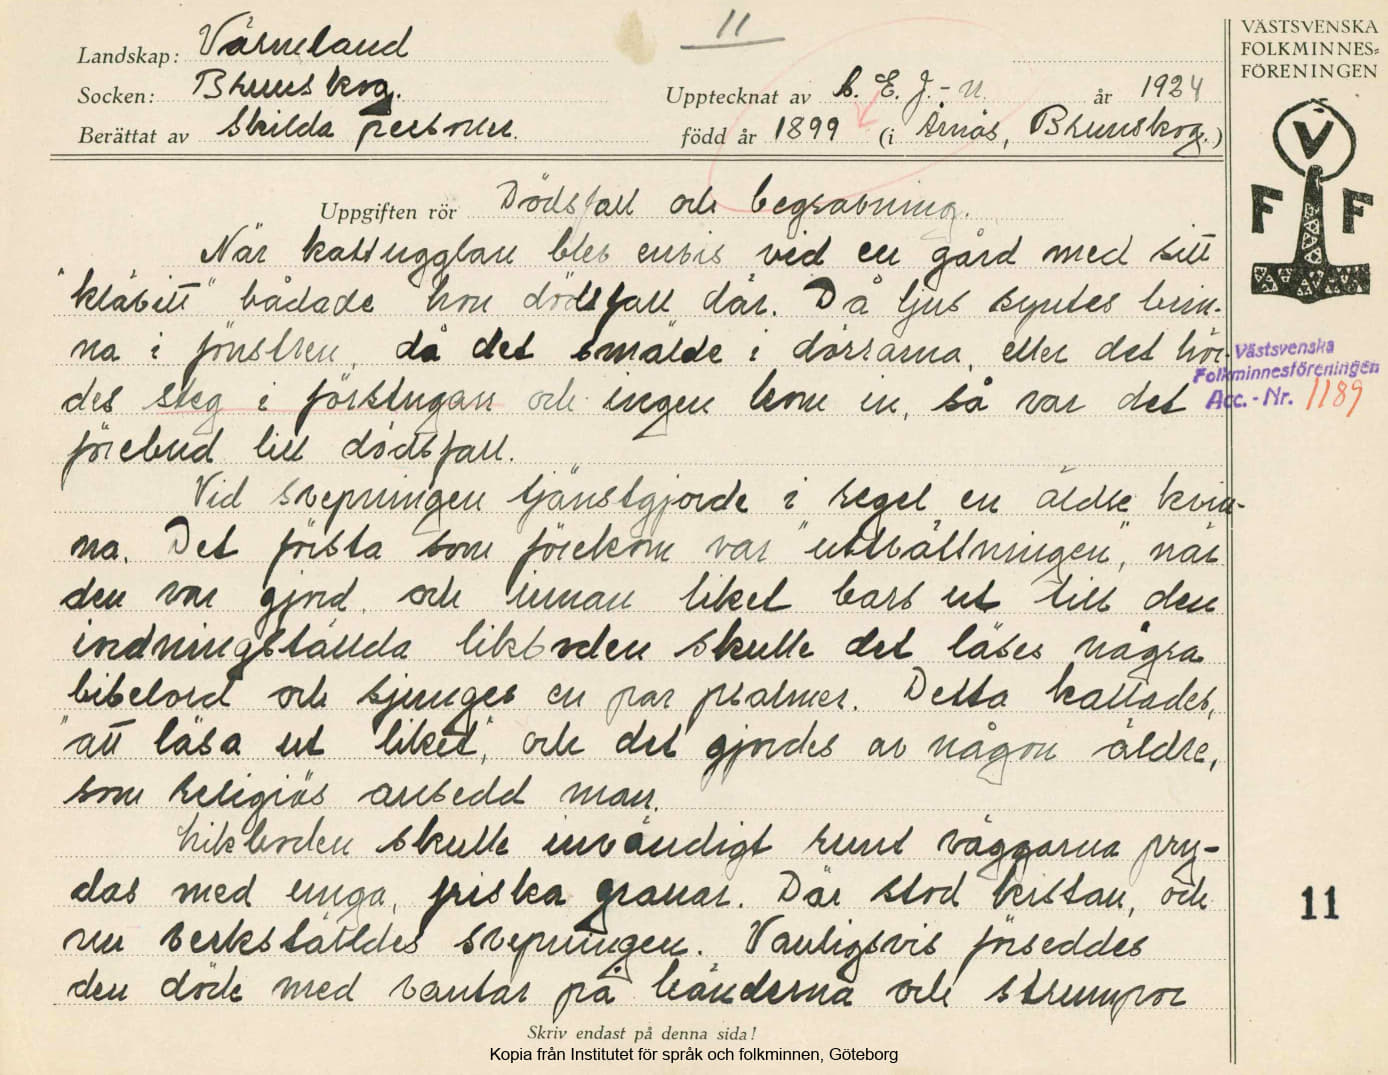 11
Landskap: Värmeland
Socken: Brunskog.
Berättat av Skilda personer.
Upptecknat av C. E. J.-n. år 1924
född år 1899 (i Årnäs, Brunskog.)
VÄSTSVENSKA
FOLKMINNES-
FÖRENINGEN
V
F F
Uppgiften rör Dödsfall och begravning.
När kattugglan blev envis vid en gård med sitt
"klävitt" bådade hon dödsfall där. Då ljus syntes brin-
na i fönstren, då det smälde i dörrarna, eller det hör-
des steg i förstugan och ingen kom in, så var det
förebud till dödsfall.
Västsvenska
Folkminnesföreningen
Acc.-Nr. 1189
Vid svepningen tjänstgjorde i regel en äldre kvin-
na. Det första som förekom var "uttvättningen", när
den var gjord, och innan liket bars ut till den
iordningställda likboden skulle det läses några
bibelord och sjunges en par psalmer. Detta kallades,
"att läsa ut liket", och det gjordes av någon äldre,
som religiös ansedd man.
Likboden skulle invändigt runt väggarna pry-
das med unga, friska granar. Där stod kistan, och
nu verkställdes svepningen. Vanligsvis förseddes
den döde med vantar på händerna och strumpor
11
Skriv endast på denna sida!
Kopia från Institutet för språk och folkminnen, Göteborg